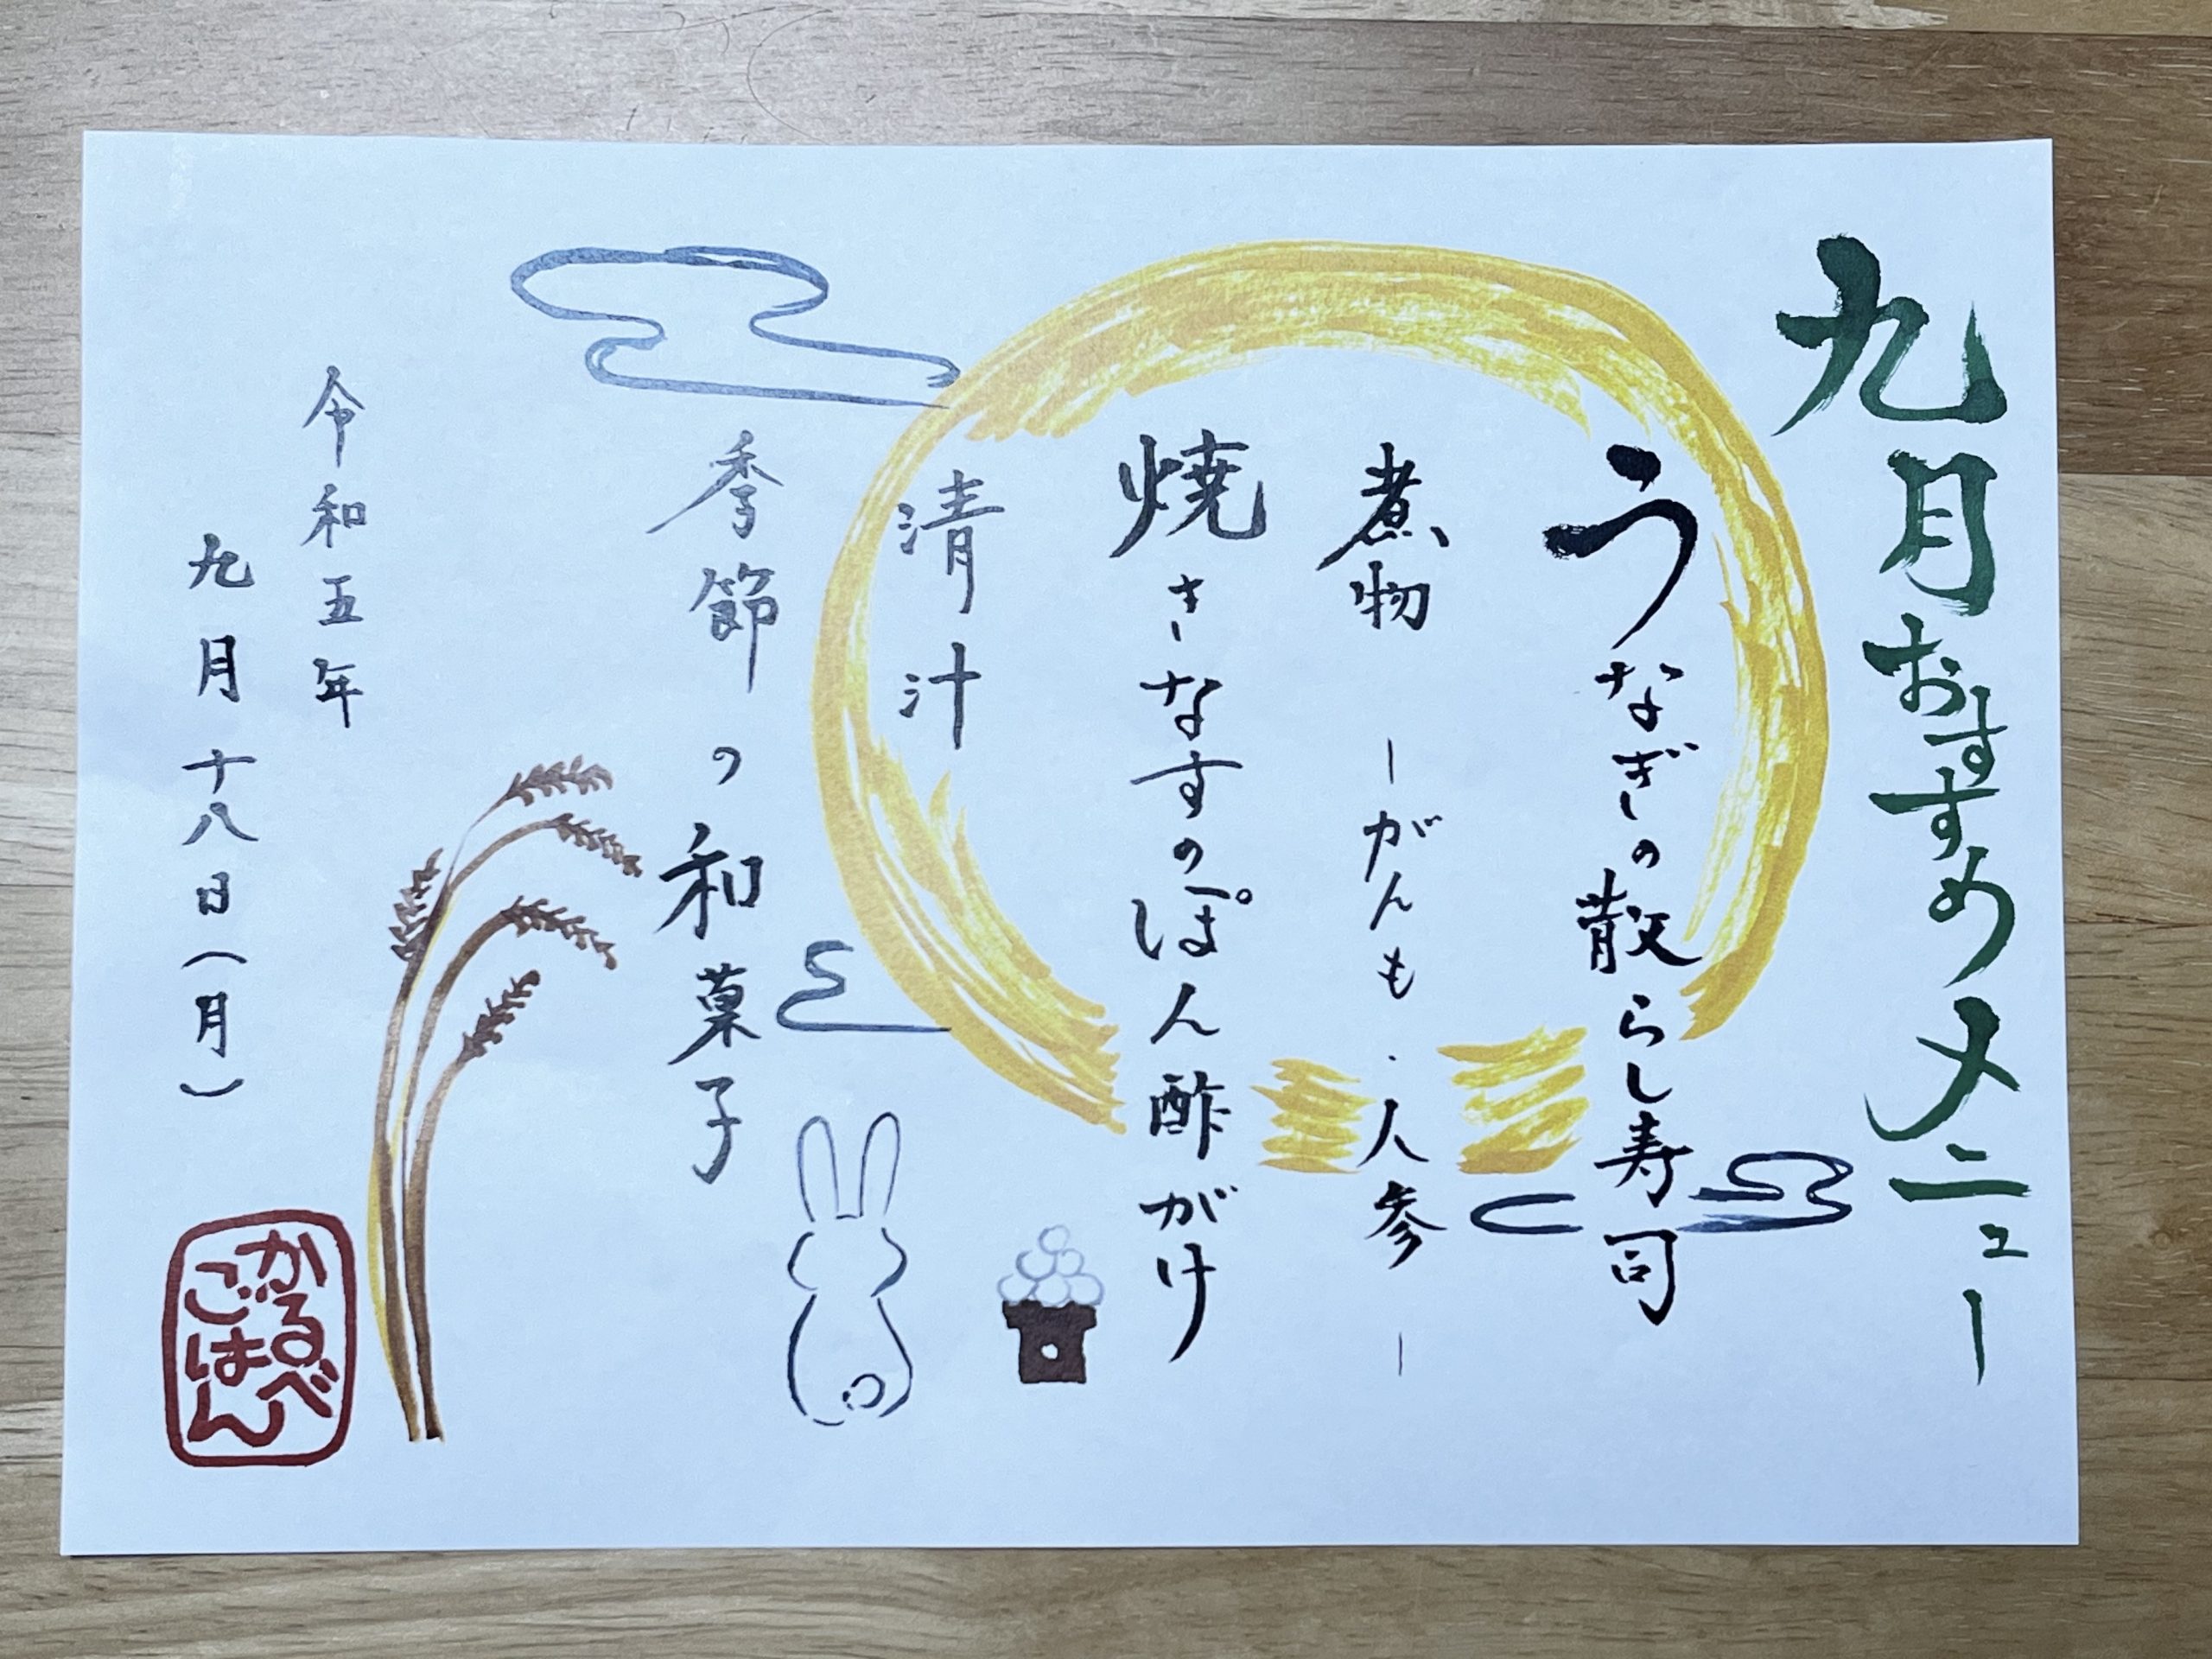 九月おすすめメニュー
うなぎの散らし寿司
煮物 ーがんも・人参ー
焼きなすのぽん酢がけ
清汁
季節の和菓子
令和五年
九月十八日(月)
かるべ
ごはん